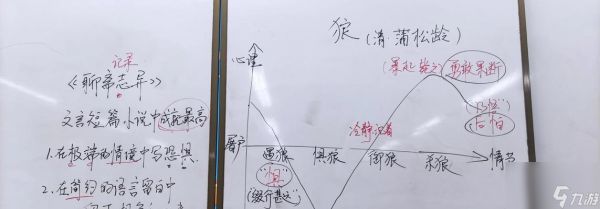 记录
《聊斋志异》
文言短篇小说中成就最高
1.在极端的情境中写恐惧
2.在简约的语言留白中
狼(清 蒲松龄)
心理
(暴起 毙之) 勇敢果断
后怕
冷静沉着
屠户
遇狼 惧狼 御狼 杀狼 情节
"惧"
("缀行甚远")
九游